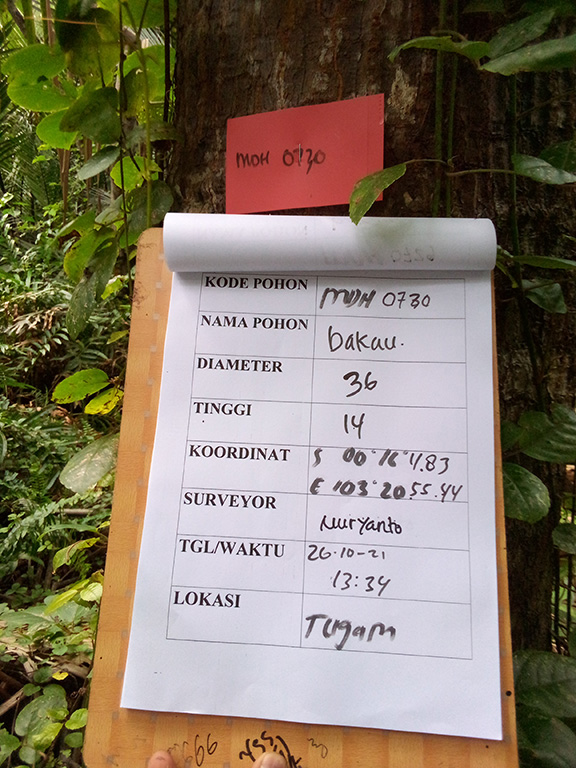 MDH 0730
KODE POHON MDH 0730
NAMA POHON bakau.
DIAMETER 36
TINGGI 14
KOORDINAT S 00°16'4.83
E 103°20.55.44
SURVEYOR Nuryanto
TGL/WAKTU 26-10-21
13:34
LOKASI Tugam